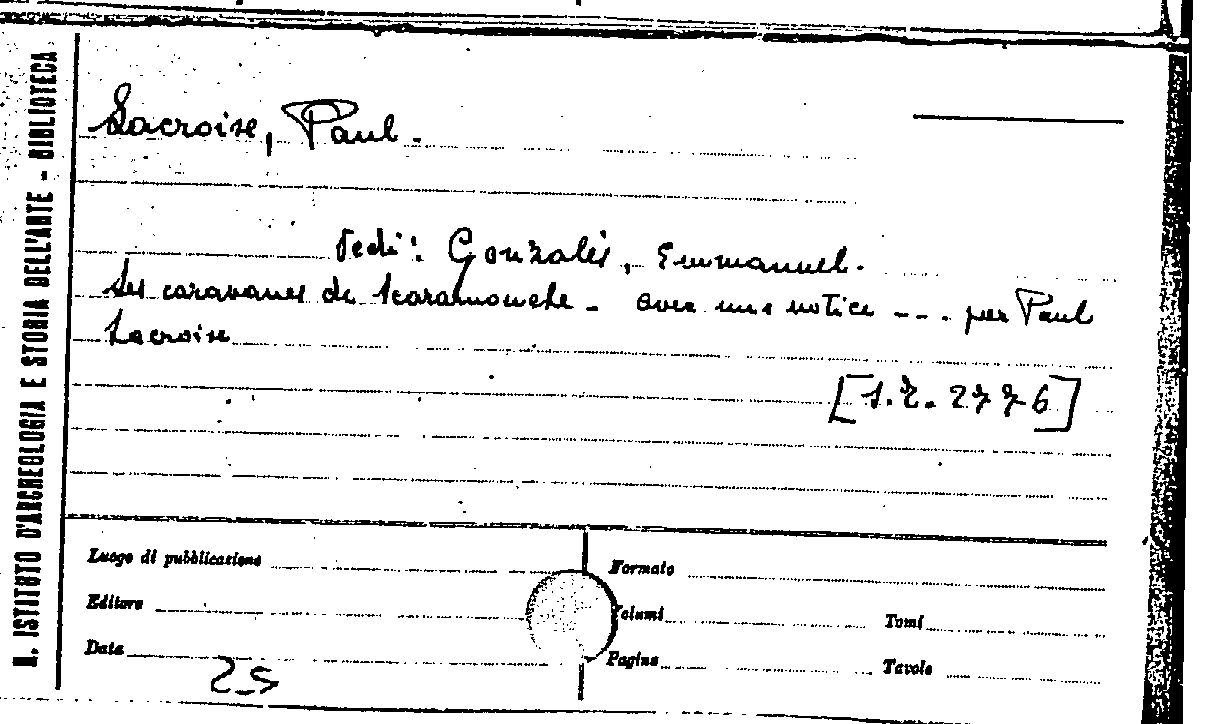 R. ISTITUTO D'ARCHEOLOGIA E STORIA DELL'ARTE - BIBLIOTECA
Lacroise, Paul.
Vedi: Gonzalès, Emmanuel.
Les caravanes de Scaramouche - avec une notice --- par Paul
Lacroise
[1.2.2776]
Luogo di pubblicazione
Formato
Editore
Volumi
Tomi
Data
Pagine
Tavole
25